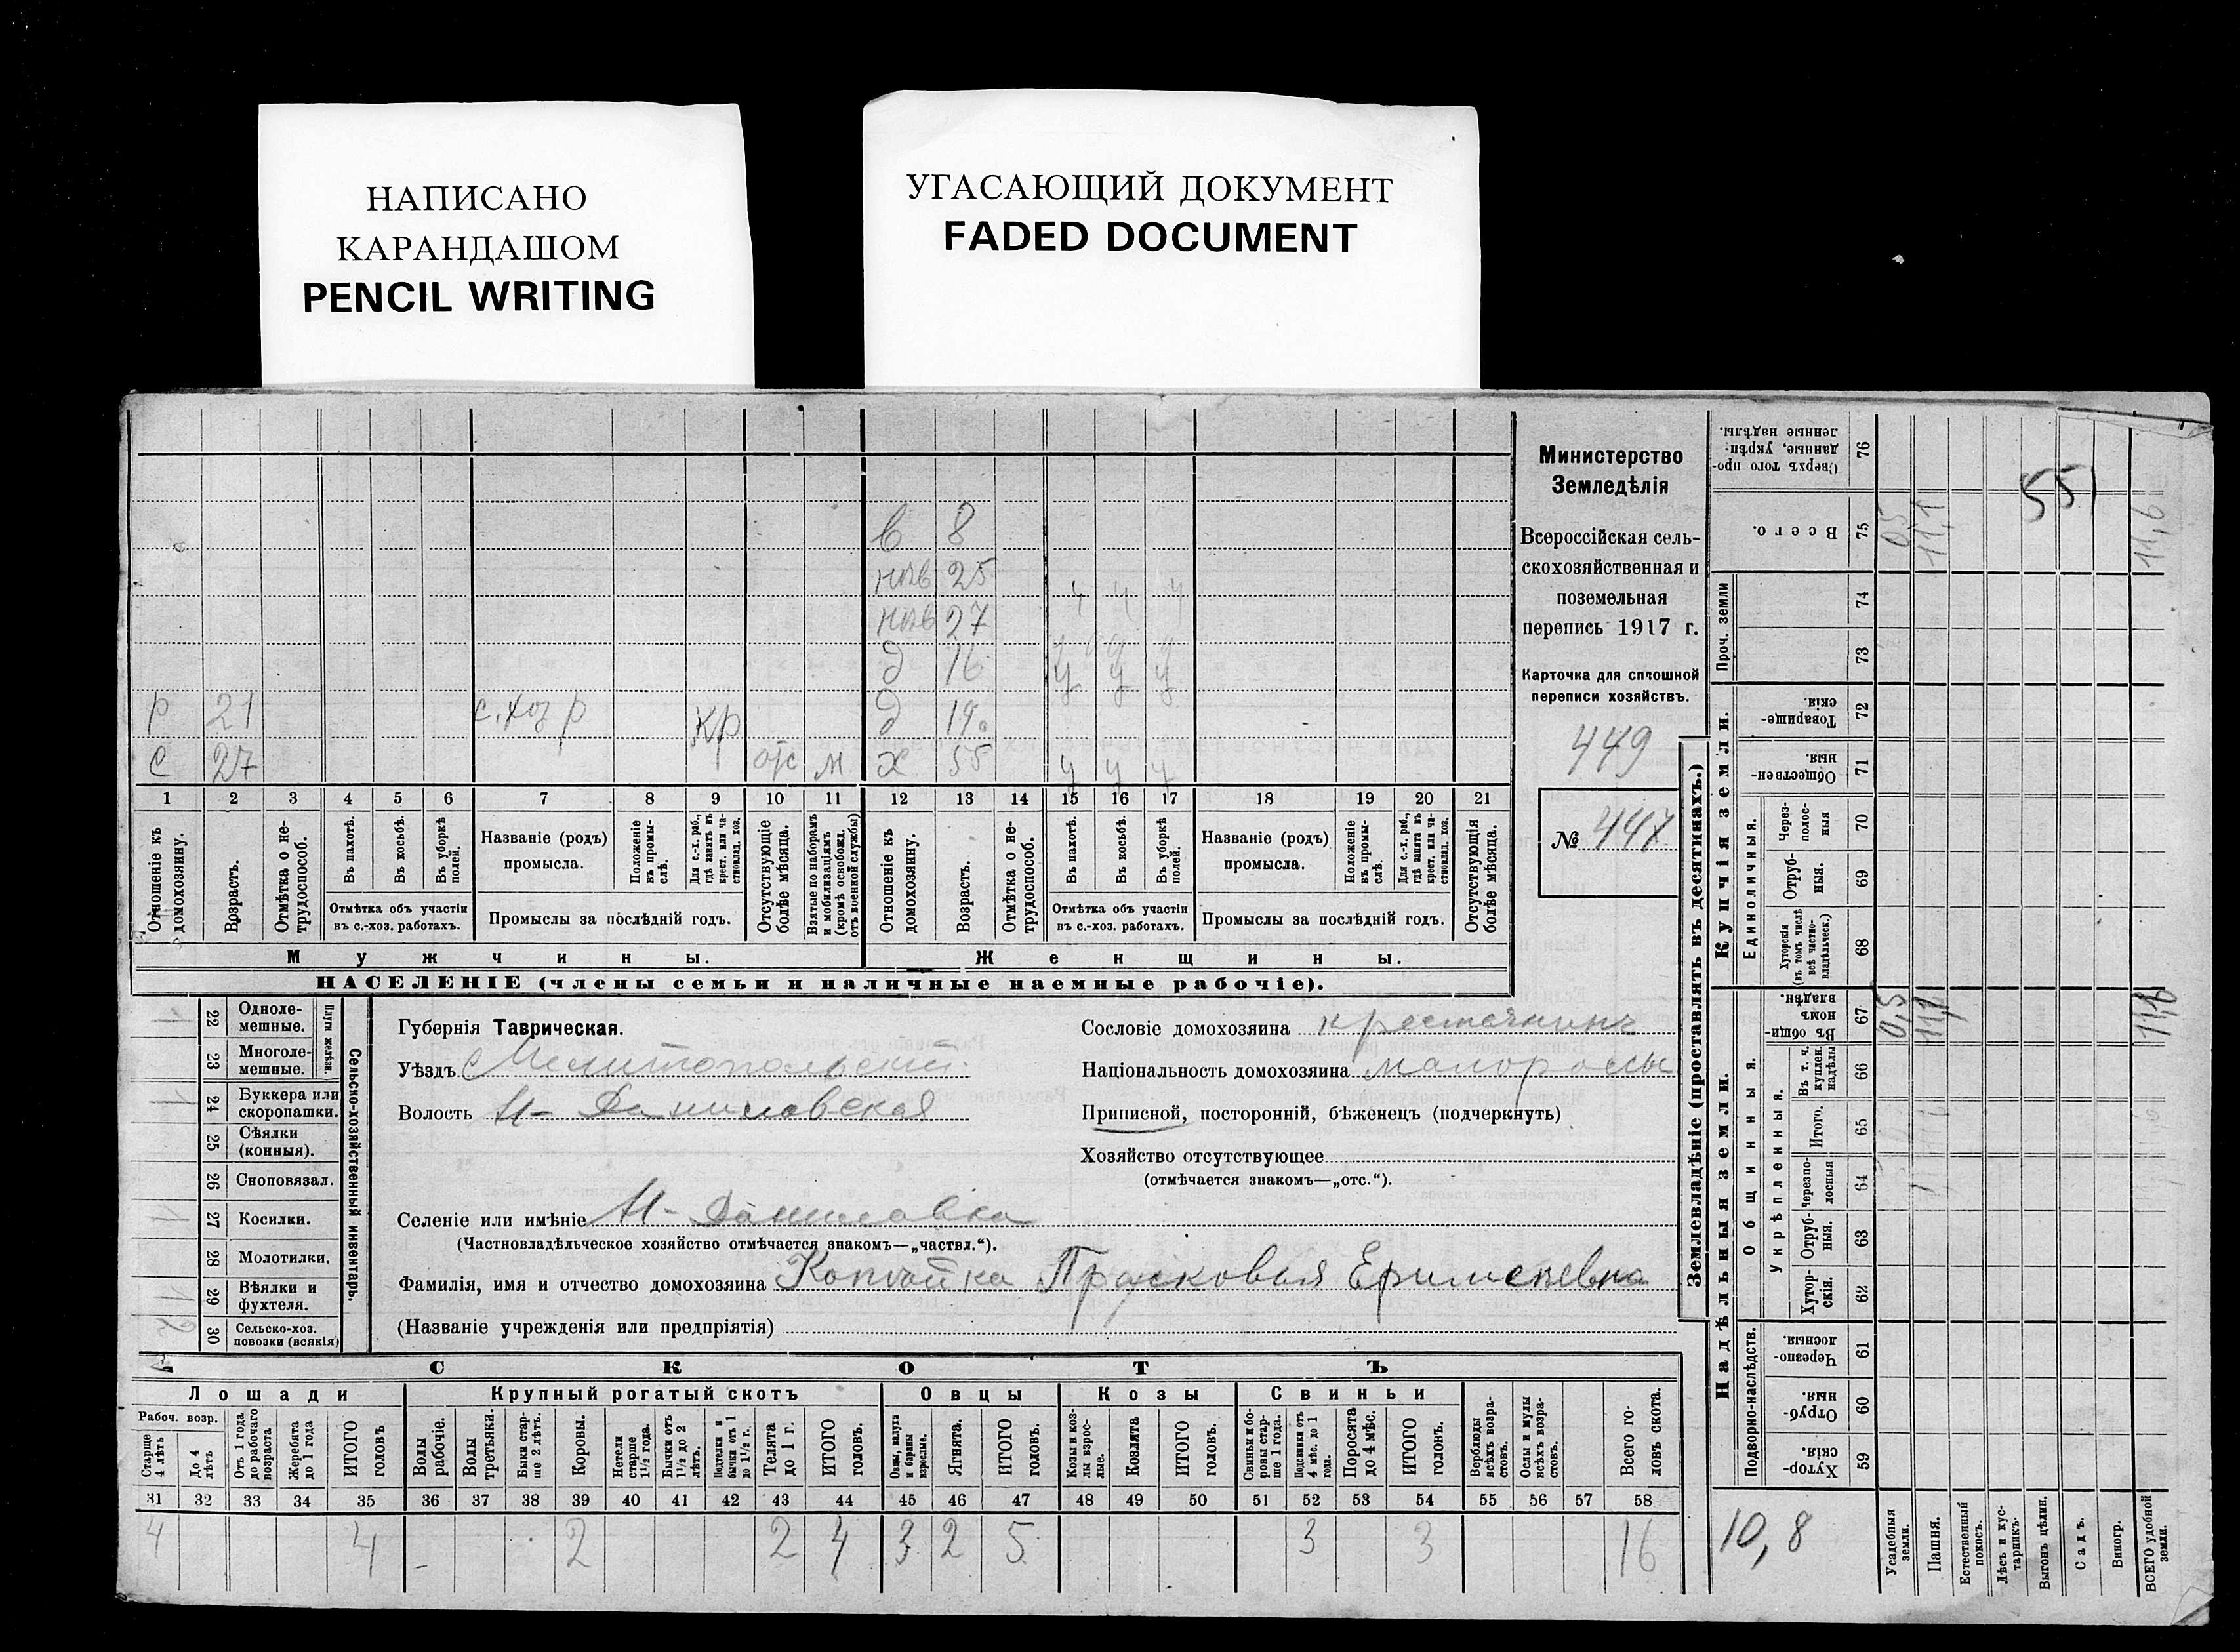 НАПИСАНО
КАРАНДАШОМ
PENCIL WRITING
УГАСАЮЩИЙ ДОКУМЕНТ
FADED DOCUMENT
в 8
нев 25
нев 27 ч ч ч
д 16 у у у
р 21 с.хоз р кр д 19
с 27 отс м х 55 у у у
1 2 3 4 5 6 7 8 9 10 11 12 13 14 15 16 17 18 19 20 21
Отношеніе къ домохозяину.
Возрастъ.
Отмѣтка о нетрудоспособ.
Въ пахотѣ.
Въ косьбѣ.
Въ уборкѣ полей.
Отмѣтка объ участіи
въ с.-хоз. работахъ.
Названіе (родъ)
промысла.
Положеніе въ промыслѣ.
Для с.-х. раб., гдѣ занятъ въ крест. или частновлад. хоз.
Промыслы за послѣдній годъ.
Отсутствующіе болѣе мѣсяца.
Взятые по наборамъ и мобилизаціямъ (кромѣ освобожд. отъ военной службы)
Отношеніе къ домохозяину.
Возрастъ.
Отмѣтка о нетрудоспособ.
Въ пахотѣ.
Въ косьбѣ.
Въ уборкѣ полей.
Отмѣтка объ участіи
въ с.-хоз. работахъ.
Названіе (родъ)
промысла.
Положеніе въ промыслѣ.
Для с.-х. раб., гдѣ занятъ въ крест. или частновлад. хоз.
Промыслы за послѣдній годъ.
Отсутствующія болѣе мѣсяца.
Мужчины. Женщины.
НАСЕЛЕНІЕ (члены семьи и наличные наемные рабочіе).
Министерство
Земледѣлія
Всероссійская сель-
скохозяйственная и
поземельная
перепись 1917 г.
Карточка для сплошной
переписи хозяйствъ.
449
№ 447
22 Одноле-
мешные.
23 Многоле-
мешные.
Плуги желѣзн.
24 Буккера или
скоропашки.
25 Сѣялки
(конныя).
26 Сноповязал.
27 Косилки.
28 Молотилки.
29 Вѣялки и
фухтеля.
30 Сельско-хоз.
повозки (всякія)
Сельско-хозяйственный инвентарь.
Губернія Таврическая.
Уѣздъ Мелитопольскій
Волость Н-Даниловская
Сословіе домохозяина крестьянинъ
Національность домохозяина малороссы
Приписной, посторонній, бѣженецъ (подчеркнуть)
Хозяйство отсутствующее
(отмѣчается знакомъ—„отс.“).
Селеніе или имѣніе Н-Даниловка
(Частновладѣльческое хозяйство отмѣчается знакомъ—„частвл.“).
Фамилія, имя и отчество домохозяина Прасковья
(Названіе учрежденія или предпріятія)
СКОТЪ
Лошади Крупный рогатый скотъ Овцы Козы Свиньи
Рабоч. возр.
Старше 4 лѣтъ
До 4 лѣтъ
Отъ 1 года до рабочаго возраста
Жеребята до 1 года
ИТОГО головъ
Волы рабочіе.
Волы третьяки.
Быки старше 2 лѣтъ.
Коровы.
Нетели старше 1½ года.
Бычки отъ 1½ до 2 лѣтъ.
Подтелки и бычки отъ 1 до 1½ г.
Телята до 1 г.
ИТОГО головъ.
Овцы, валухи и бараны взрослые.
Ягнята.
ИТОГО головъ.
Козы и козлы взрослые.
Козлята
ИТОГО головъ.
Свиньи и боровы старше 1 года.
Подсвинки отъ 4 мѣс. до 1 года.
Поросята до 4 мѣс.
ИТОГО головъ.
Верблюды всѣхъ возрастовъ.
Ослы и мулы всѣхъ возрастовъ.
Всего головъ скота.
31 32 33 34 35 36 37 38 39 40 41 42 43 44 45 46 47 48 49 50 51 52 53 54 55 56 57 58
4 4 - 2 2 4 3 2 5 3 3 16
Землевладѣніе (проставлять въ десятинахъ.)
Надѣльныя земли. Купчія земли. Проч. земли
Подворно-наслѣдств.
Общинныя.
Укрѣпленныя.
Единоличныя.
Сверхъ того проданные, укрѣпленные надѣлы. 76
Всего. 75 0,5 11,1 11,6
74
73
Товарищескія. 72
Общественныя. 71
Черезполосныя 70
Отрубныя. 69
Хуторскія (въ томъ числѣ всѣ частновладѣльческ.) 68
Въ общинномъ владѣн. 67 0,5 11,1 11,6
Въ т. ч. куплен. надѣлы 66
Итого. 65
Черезполосныя 64
Отрубныя. 63
Хуторскія. 62
Черезполосныя. 61
Отрубныя. 60
Хуторскія. 59
551
10,8
Усадебныя земли.
Пашня.
Естественный покосъ.
Лѣсъ и кустарникъ.
Выгонъ цѣлин.
Садъ.
Виногр.
ВСЕГО удобной земли.